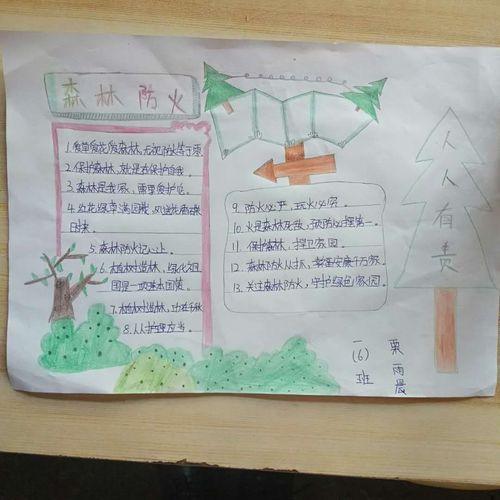 森林防火
1.爱草爱花爱森林,
2.保护森林,就是在保护自我。
3.森林是我家,需要爱护它。
4.
回来。
5.森林防火记心上。
6.植树造林,绿化祖
国是一项基本国策。
7.植树造林,功在千秋
8.人人护理应当。
9.防火必严,玩火必究。
10.火是森林死敌,预防必摆第一。
11.保护森林,捍卫家园。
12.森林防火从我,幸福安康千万家
13.关注森林防火,守护绿色家园。
人人有责
一(6)班
栗雨晨